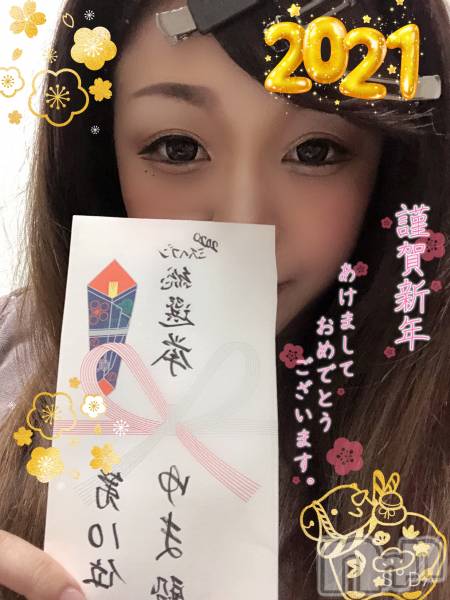 2021
謹賀新年
あけまして
おめでとう
ございます。
2020
ミスヘブン
総選挙
ゆま殿
第10位